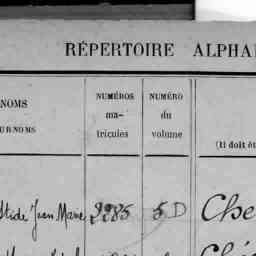 RÉPERTOIRE ALPHA
NOMS
URNOMS
NUMÉROS
ma-
tricules
NUMÉRO
du
volume
(Il doit êt
Jean Marie 2285 5 D Che